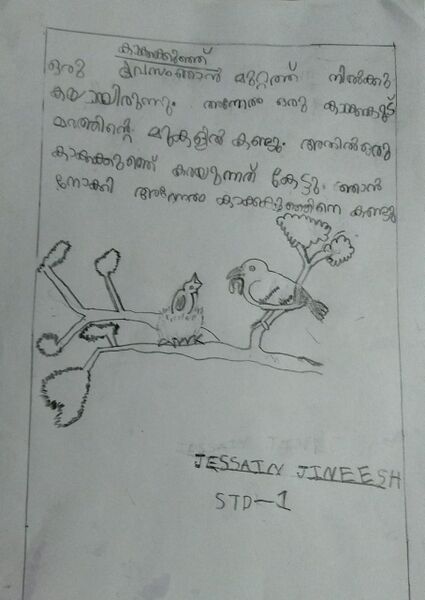 കാക്കക്കുഞ്ഞ്
ഒരു ദിവസം ഞാൻ മുറ്റത്ത് നിൽക്കു
കയായിരുന്നു. അന്നേരം ഒരു കാക്കക്കൂട്
മരത്തിന്റെ മുകളിൽ കണ്ടു. അതിൽ ഒരു
കാക്കക്കുഞ്ഞ് കരയുന്നത് കേട്ടു. ഞാൻ
നോക്കി അന്നേരം കാക്കകുഞ്ഞിനെ കണ്ടു
JESSAIN JINEESH
STD-1